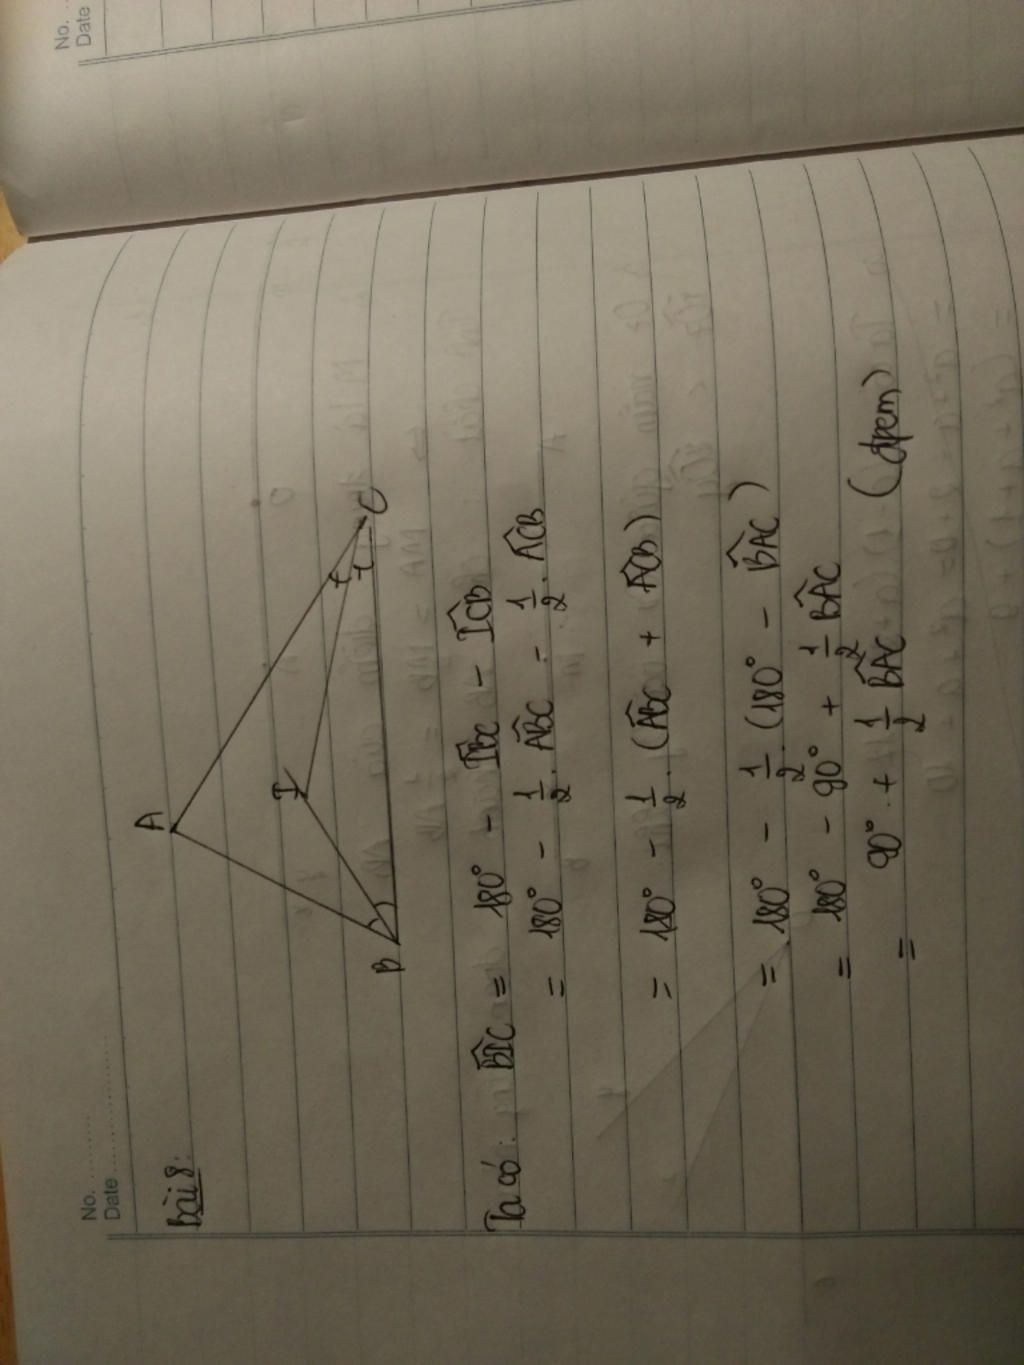 No.
Date
No. ..........
Date ....................
Bài 8:
A
I
B
C
Ta có: B̂IC = 180° - ÎBC - ÎCB
= 180° - 1/2 . ÂBC - 1/2 . ÂCB
= 180° - 1/2 . (ÂBC + ÂCB)
= 180° - 1/2 . (180° - B̂AC)
= 180° - 90° + 1/2 B̂AC
= 90° + 1/2 B̂AC (đpcm)